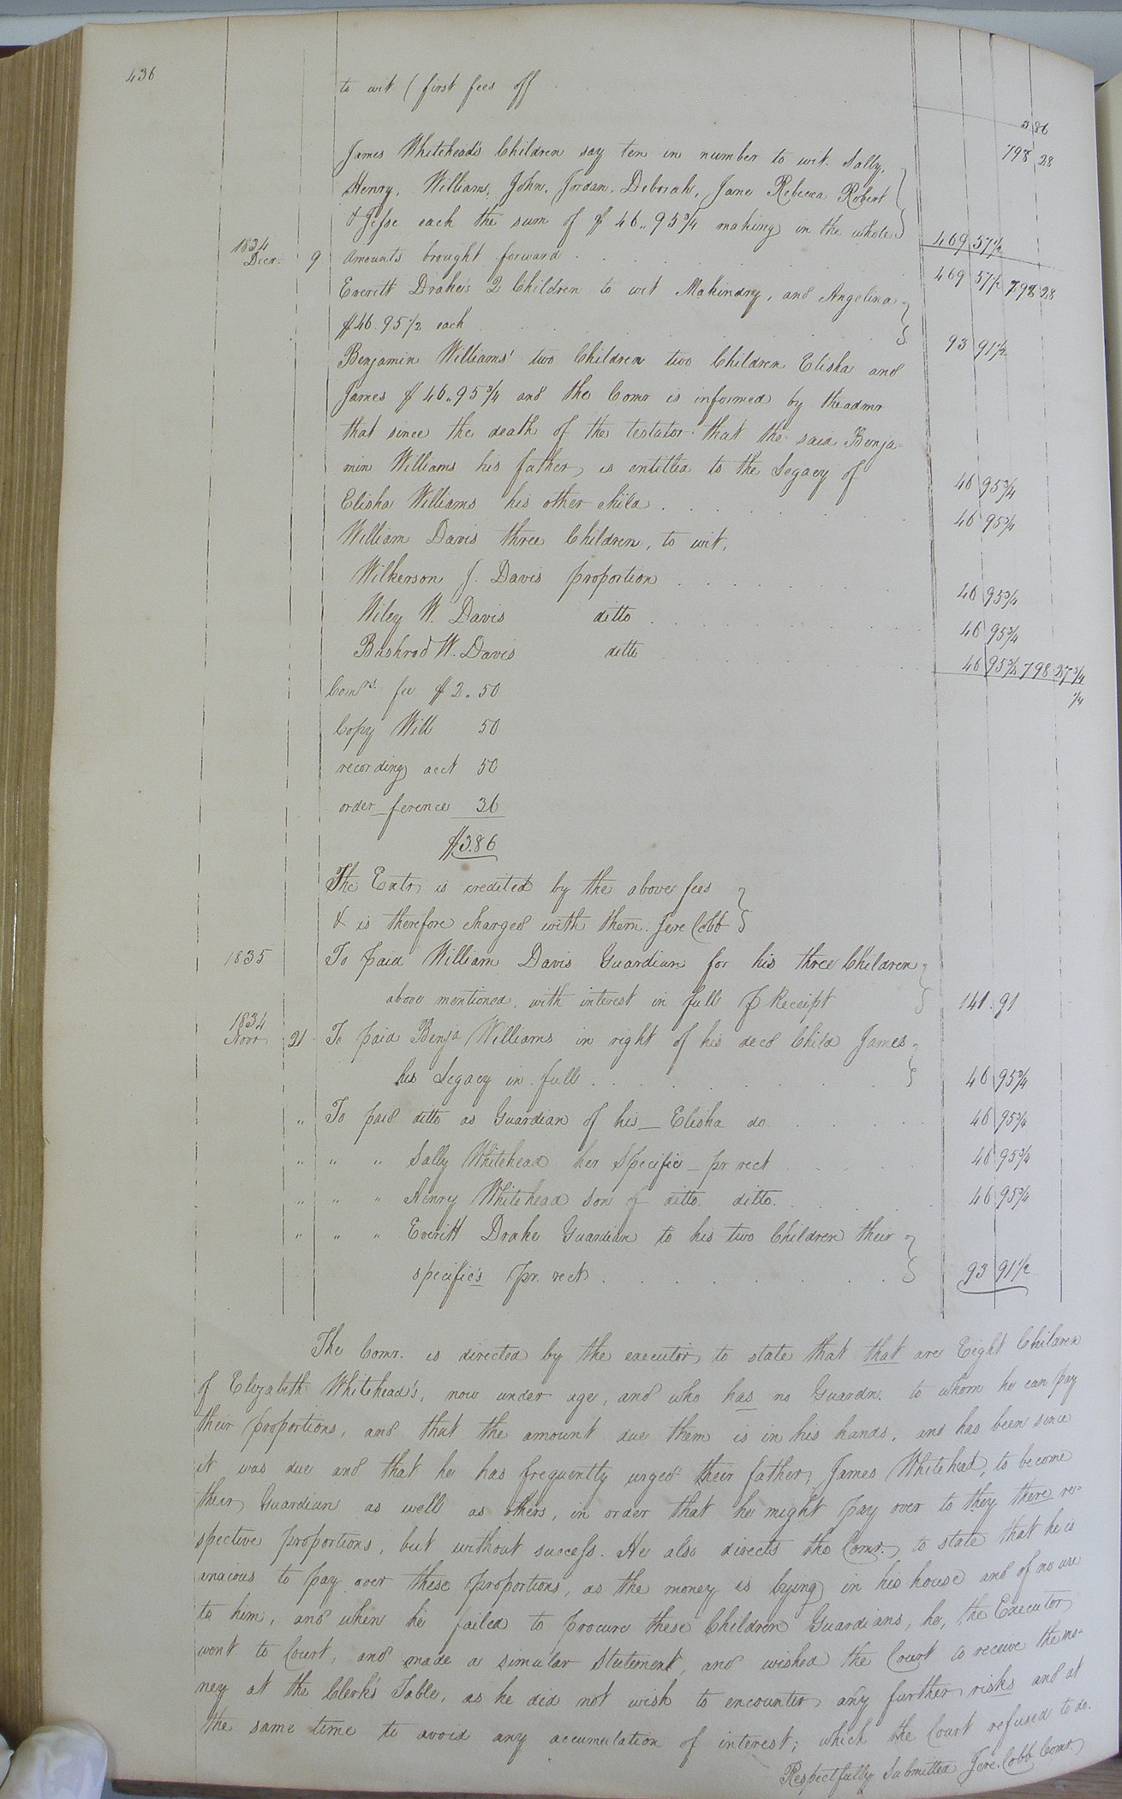 436
to wit (first fees off
3 86
798 28
James Whitehead's Children say ten in number to wit. Sally,
Henry, Williams, John, Jordan, Deborah, Jane Rebecca Robert
& Jesse each the sum of $ 46..95 3/4 making in the whole 469 57 1/2
1834 Decr. 9 amounts brought forward 469 57 1/2 798 28
Everitt Drake's 2 Children to wit Makindry, and Angelina
$46.95 1/2 each 93 91 1/2
Benjamin Williams' two Children two Children Elisha and
James $ 46.95 3/4 and the Comr is informed by the admr
that since the death of the testator that the said Benja-
min Williams his father is entitled to the Legacy of 46 95 3/4
Elisha Williams his other child 46 95 3/4
William Davis three Children, to wit,
Wilkerson J. Davis proportion 46 95 3/4
Wiley W. Davis ditto 46 95 3/4
Bushrod W. Davis ditto 46 95 3/4 798 27 3/4
1/4
Comrs. fee $ 2.50
Copy Will 50
recording acct 50
order_ference 36
$3.86
The Extr is credited by the above fees
& is therefore charged with them. Jere Cobb
1835 To paid William Davis Guardian for his three Children
above mentioned with interest in full pr Receipt 141.91
1834 Novr 21 To paid Benja Williams in right of his decd Child James
his Legacy in full 46 95 3/4
" To paid ditto as Guardian of his_ Elisha do 46 95 3/4
" " " Sally Whitehead her Specific_ pr rect 46 95 3/4
" " " Henry Whitehead son of ditto ditto 46 95 3/4
" " " Everitt Drake Guardian to his two Children their
specific's pr. rect 93 91 1/2
The Comr. is directed by the executor to state that that are Eight Children
of Elizabeth Whitehead's, now under age, and who has no Guardn. to whom he can pay
their proportions, and that the amount due them is in his hands, and has been since
it was due and that he has frequently urged their father, James Whitehead, to become
their Guardian as well as others, in order that he might pay over to they there re-
spective proportions, but without success. He also directs the Comr. to state that he is
anxious to pay over these proportions, as the money is lying in his house and of no use
to him, and when he failed to procure these Children Guardians, he, the Executor
went to Court, and made a simular Statement, and wished the Court to receive the mo-
ney at the Clerk's Table, as he did not wish to encounter any further risks and at
the same time to avoid any accumulation of interest; which the Court refused to do.
Respectfully Submitted Jere. Cobb Comr